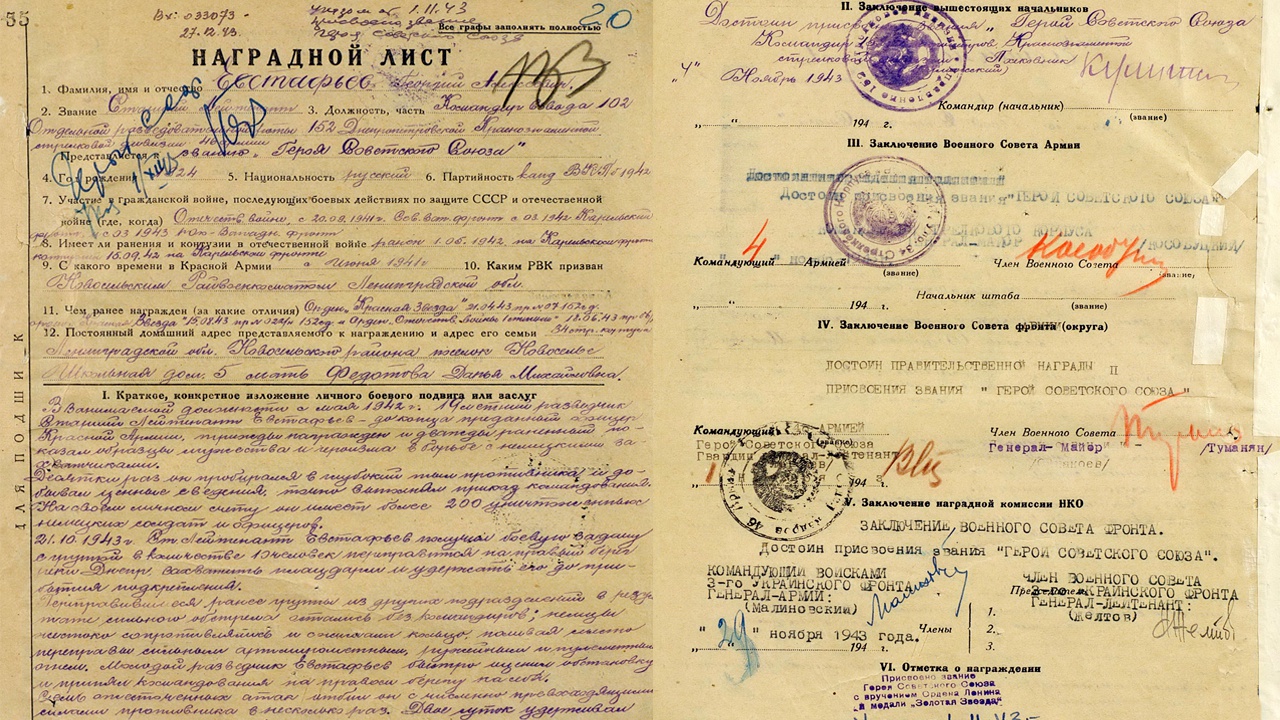 55
Вх: 033073
27.12.43
1.11.43
Все графы заполнять полностью
20
НАГРАДНОЙ ЛИСТ
1. Фамилия, имя и отчество Евстафьев Георгий
2. Звание Старший Лейтенант 3. Должность, часть Командир взвода 102
Отдельной разведовательной роты 152 Днепропетровской Краснознаменной
стрелковой дивизии 46 армии
Представляется к званию „Героя Советского Союза"
4. Год рождения 1924 5. Национальность русский 6. Партийность канд ВКП/б 1942
7. Участие в гражданской войне, последующих боевых действиях по защите СССР и отечественной
войне (где, когда) Отечеств. войне с 20.09.1941г. Сев. Зап. фронт с 03.1942 Карельский
фронт, с 03 1943 Юго-Западн. фронт
8. Имеет ли ранения и контузии в отечественной войне ранен 1.05.1942 на Карельском фронте
контужен 15.09.42 на Карельском фронте
9. С какого времени в Красной Армии с июня 1941г 10. Каким РВК призван
Новосельским Райвоенкоматом Ленинградской обл.
11. Чем ранее награжден (за какие отличия) Орден „Красная Звезда"
12. Постоянный домашний адрес представляемого к награждению и адрес его семьи
Ленинградской обл. Новосельского района поселок Новоселье
Школьная дом. 5 мать Федотова Дарья Михайловна.
ДЛЯ ПОДШИВК
I. Краткое, конкретное изложение личного боевого подвига или заслуг
В занимаемой должности с мая 1942 г. 19 летний разведчик
Старший Лейтенант Евстафьев – до конца преданный офицер
Красной Армии, трижды награжден и дважды раненный по-
казал образцы мужества и героизма в борьбе с немецкими за-
хватчиками.
Десятки раз он пробирался в глубокий тыл противника и до-
бывал ценные сведения, точно выполняя приказ командования.
На своем личном счету он имеет более 200 уничтоженных
немецких солдат и офицеров.
21.10.1943г. Ст. Лейтенант Евстафьев получил боевую задачу
с группой в количестве 10 человек переправиться на правый берег
реки Днепр, захватить плацдарм и удержать его до при-
бытия подкрепления.
Переправившиеся ранее группы из других подразделений в резуль-
тате сильного обстрела остались без командиров; немцы
жестоко сопротивлялись и сжимали кольцо, поливая место
переправы сильным артминометным, ружейным и пулеметным
огнем. Молодой разведчик Евстафьев быстро оценил обстановку
и принял командование на правом берегу на себя.
Семь ожесточенных атак отбил он с численно превосходящими
силами противника в несколько раз. Двое суток удерживал
II. Заключение вышестоящих начальников
Достоин присвоения звания „Герой Советского Союза
Командир Краснознаменной
стрелковой Полковник
„4" Ноябрь 1943
Командир (начальник)
(звание)
„ " 194 г.
III. Заключение Военного Совета Армии
Достоин присвоения звания "ГЕРОЙ СОВЕТСКОГО СОЮЗА"
КОРПУСА
ГЕНЕРАЛ-МАЙОР /КОСОБУЦКИЙ/
Командующий Армией Член Военного Совета
(звание) (звание)
4
„ " 194 г. Начальник штаба
(звание)
IV. Заключение Военного Совета фронта (округа)
ДОСТОИН ПРАВИТЕЛЬСТВЕННОЙ НАГРАДЫ
ПРИСВОЕНИЯ ЗВАНИЯ " ГЕРОЙ СОВЕТСКОГО СОЮЗА"
Командующий АРМИЕЙ Член Военного Совета
Герой Советского Союза Генерал-Майор /Туманян/
Гвардии Генерал-Лейтенант
V. Заключение наградной комиссии НКО
ЗАКЛЮЧЕНИЕ ВОЕННОГО СОВЕТА ФРОНТА.
Достоин присвоения звания "ГЕРОЙ СОВЕТСКОГО СОЮЗА".
КОМАНДУЮЩИЙ ВОЙСКАМИ ЧЛЕН ВОЕННОГО СОВЕТА
3-го УКРАИНСКОГО ФРОНТА 3-го УКРАИНСКОГО ФРОНТА
ГЕНЕРАЛ-АРМИИ: ГЕНЕРАЛ-ЛЕЙТЕНАНТ:
(Малиновский) (ЖЕЛТОВ)
Председатель
Члены 1.
2.
3.
"29" ноября 1943 года.
194 г.
VI. Отметка о награждении
Присвоено звание
Героя Советского Союза
с вручением Ордена Ленина
и медали „Золотая Звезда"